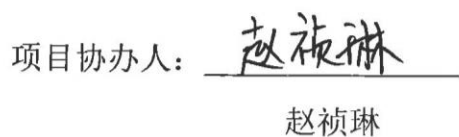 项目协办人：赵祯琳
赵祯琳